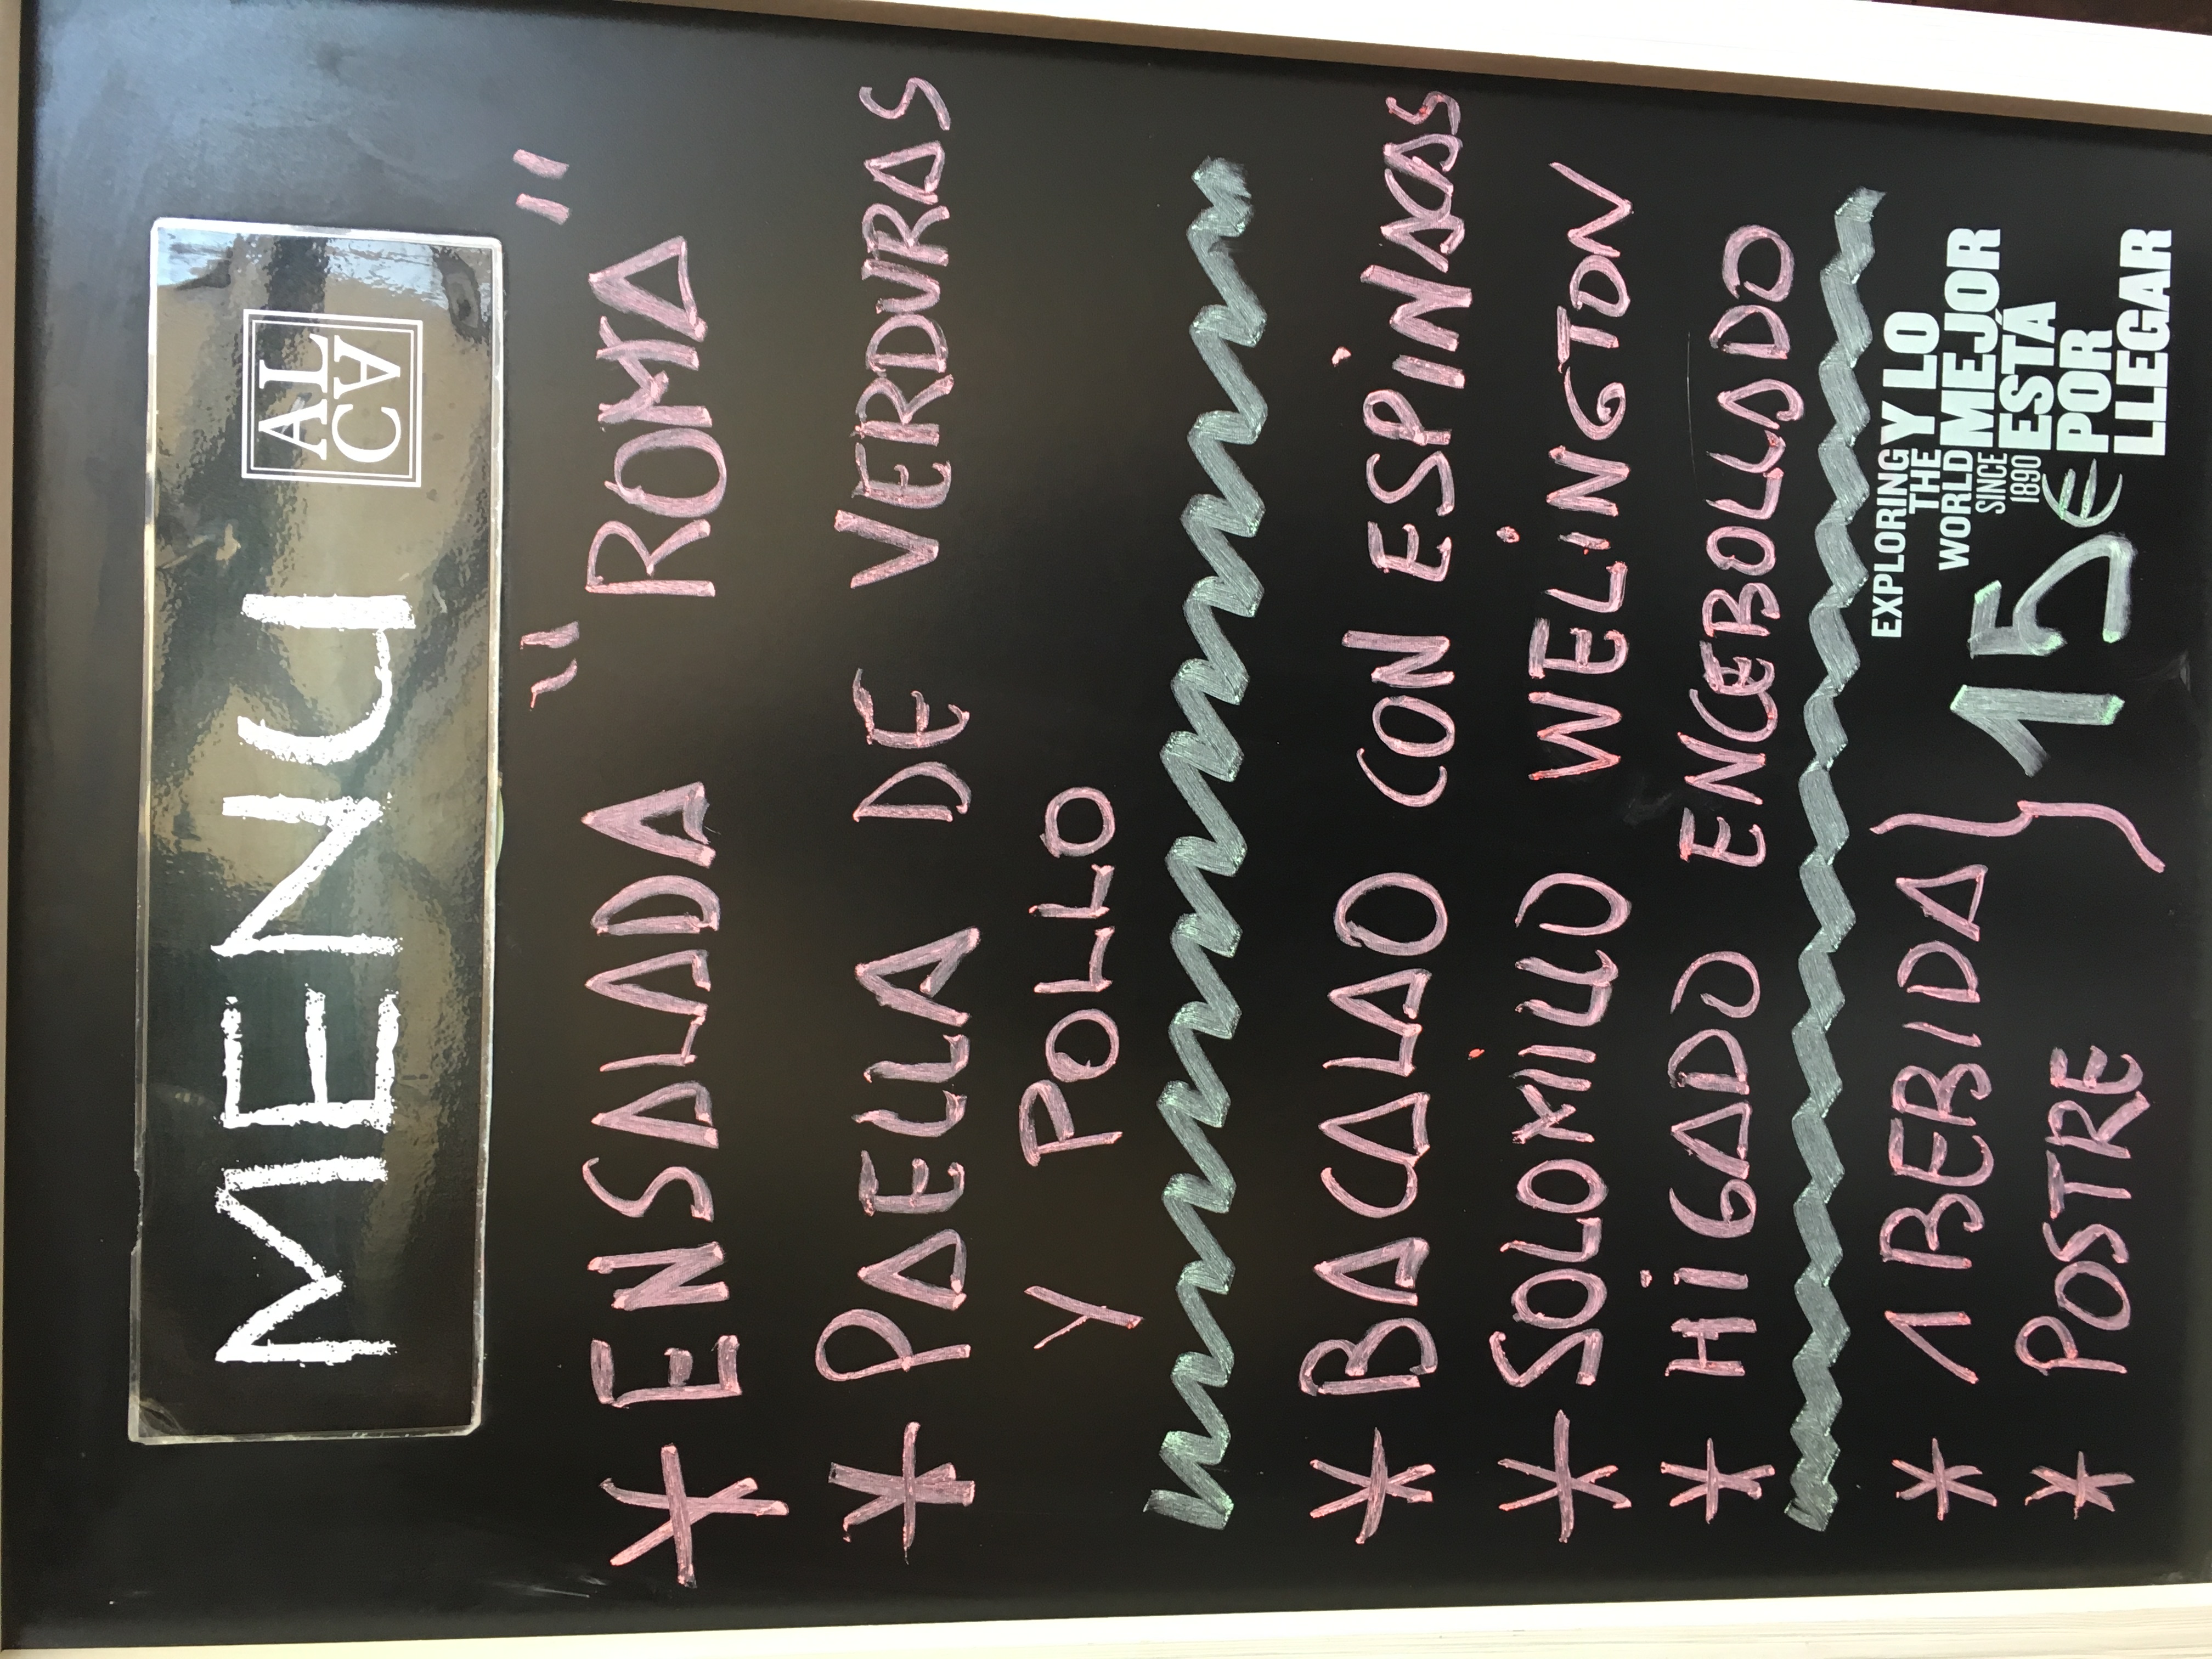 MENU
AL
CA
* ENSALADA "ROMA"
* PAELLA DE VERDURAS
Y POLLO
* BACALAO CON ESPINACAS
* SOLOMILLO WELINGTON
* HIGADO ENCEBOLLADO
* 1 BEBIDA
* POSTRE
} 15€
EXPLORING
THE
WORLD
SINCE
1890
Y LO
MEJOR
ESTÁ
POR
LLEGAR